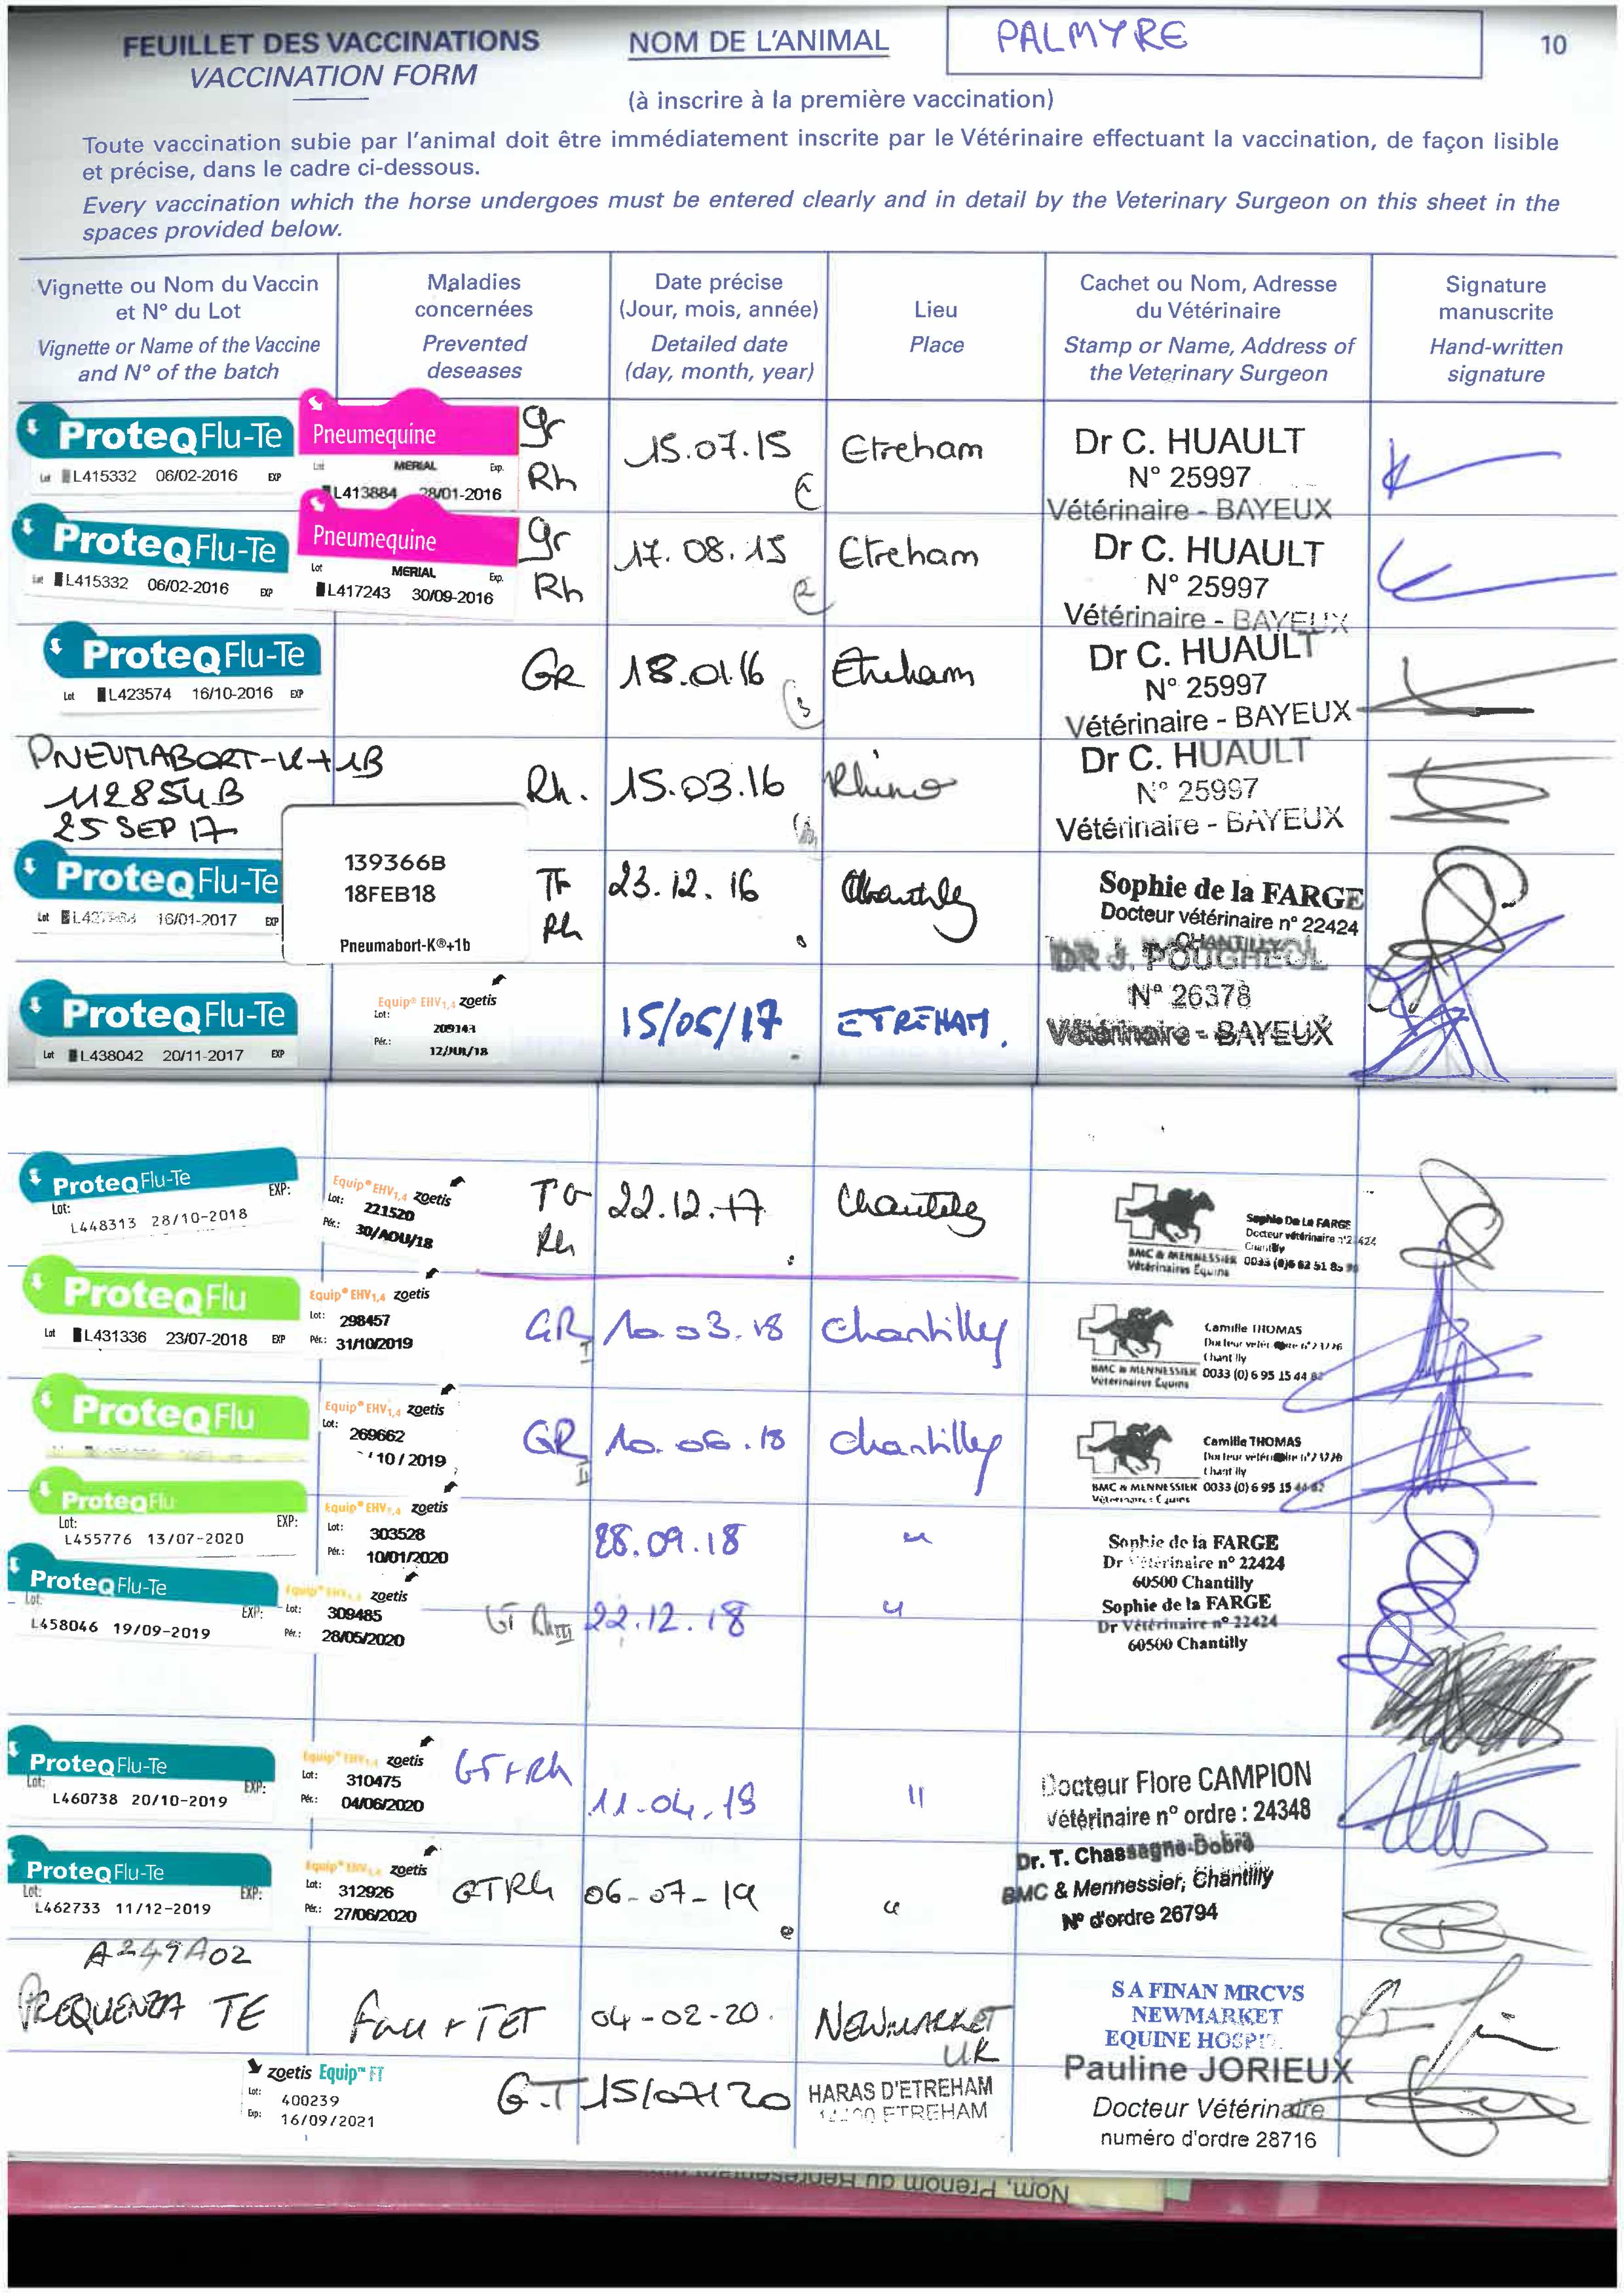 FEUILLET DES VACCINATIONS
VACCINATION FORM
NOM DE L'ANIMAL
PALMYRE
10
(à inscrire à la première vaccination)
Toute vaccination subie par l'animal doit être immédiatement inscrite par le Vétérinaire effectuant la vaccination, de façon lisible
et précise, dans le cadre ci-dessous.
Every vaccination which the horse undergoes must be entered clearly and in detail by the Veterinary Surgeon on this sheet in the
spaces provided below.
Vignette ou Nom du Vaccin
et N° du Lot
Vignette or Name of the Vaccine
and N° of the batch
Maladies
concernées
Prevented
deseases
Date précise
(Jour, mois, année)
Detailed date
(day, month, year)
Lieu
Place
Cachet ou Nom, Adresse
du Vétérinaire
Stamp or Name, Address of
the Veterinary Surgeon
Signature
manuscrite
Hand-written
signature
ProteqFlu-Te
Lot L415332 06/02-2016 EXP
Pneumequine
Lot MERIAL Exp.
L413884 28/01-2016
gr
Rh
15.07.15
Etreham
Dr C. HUAULT
N° 25997
Vétérinaire - BAYEUX
ProteqFlu-Te
Lot L415332 06/02-2016 EXP
Pneumequine
Lot MERIAL Exp.
L417243 30/09-2016
gr
Rh
17.08.15
2
Etreham
Dr C. HUAULT
N° 25997
Vétérinaire - BAYEUX
ProteqFlu-Te
Lot L423574 16/10-2016 EXP
GR
18.01.16
3
Etreham
Dr C. HUAULT
N° 25997
Vétérinaire - BAYEUX
PNEUMABORT-K+1B
112854B
25 SEP 17
Rh.
15.03.16
Rhino
Dr C. HUAULT
N° 25997
Vétérinaire - BAYEUX
ProteqFlu-Te
Lot 16/01-2017 EXP
139366B
18FEB18
Pneumabort-K®+1b
Rh
23.12.16
Chantilly
Sophie de la FARGE
Docteur vétérinaire n° 22424
CHANTILLY
ProteqFlu-Te
Lot L438042 20/11-2017 EXP
Equip® EHV1,4 zoetis
Lot: 209143
Pér.: 12/JUL/18
15/05/17
ETREHAM.
DR J. POUGHEOL
N° 26378
Vétérinaire - BAYEUX
ProteqFlu-Te
Lot: EXP:
L448313 28/10-2018
Equip® EHV1,4 zoetis
Lot: 221520
Pér.: 30/AOU/18
TG
Rh
22.12.17
Chantilly
BMC & MENNESSIER
Vétérinaires Équins
Sophie De La FARGE
Docteur vétérinaire n°22424
Chantilly
ProteqFlu
Lot L431336 23/07-2018 EXP
Equip® EHV1,4 zoetis
Lot: 298457
Pér.: 31/10/2019
GR I
10.03.18
Chantilly
BMC & MENNESSIER
Vétérinaires Équins
Camille THOMAS
Chantilly
0033 (0) 6 95 15 44 82
ProteqFlu
Equip® EHV1,4 zoetis
Lot: 269662
10/2019
GR II
10.06.18
Chantilly
BMC & MENNESSIER
Vétérinaires Équins
Camille THOMAS
Chantilly
0033 (0) 6 95 15 44 82
ProteqFlu
Lot: EXP:
L455776 13/07-2020
Equip® EHV1,4 zoetis
Lot: 303528
Pér.: 10/01/2020
28.09.18
"
Sophie de la FARGE
Dr Vétérinaire n° 22424
60500 Chantilly
ProteqFlu-Te
Lot: EXP:
L458046 19/09-2019
Equip® EHV1,4 zoetis
Lot: 309485
Pér.: 28/05/2020
GT Rh III
22.12.18
"
Sophie de la FARGE
Dr Vétérinaire n° 22424
60500 Chantilly
ProteqFlu-Te
Lot: EXP:
L460738 20/10-2019
Equip® EHV1,4 zoetis
Lot: 310475
Pér.: 04/06/2020
GT+Rh
11.04.19
"
Docteur Flore CAMPION
Vétérinaire n° ordre : 24348
ProteqFlu-Te
Lot: EXP:
L462733 11/12-2019
Equip® EHV1,4 zoetis
Lot: 312926
Pér.: 27/06/2020
GTRh
06-07-19
"
Dr. T. Chassagne-Dobra
BMC & Mennessier, Chantilly
N° d'ordre 26794
A249A02
PREQUENZA TE
FLU + TET
04-02-20.
NEWMARKET
UK
S A FINAN MRCVS
NEWMARKET
EQUINE HOSPI
zoetis Equip™ FT
Lot: 400239
Exp: 16/09/2021
G.T
15/07/20
HARAS D'ETREHAM
ETREHAM
Pauline JORIEUX
Docteur Vétérinaire
numéro d'ordre 28716
Nom, Prénom du